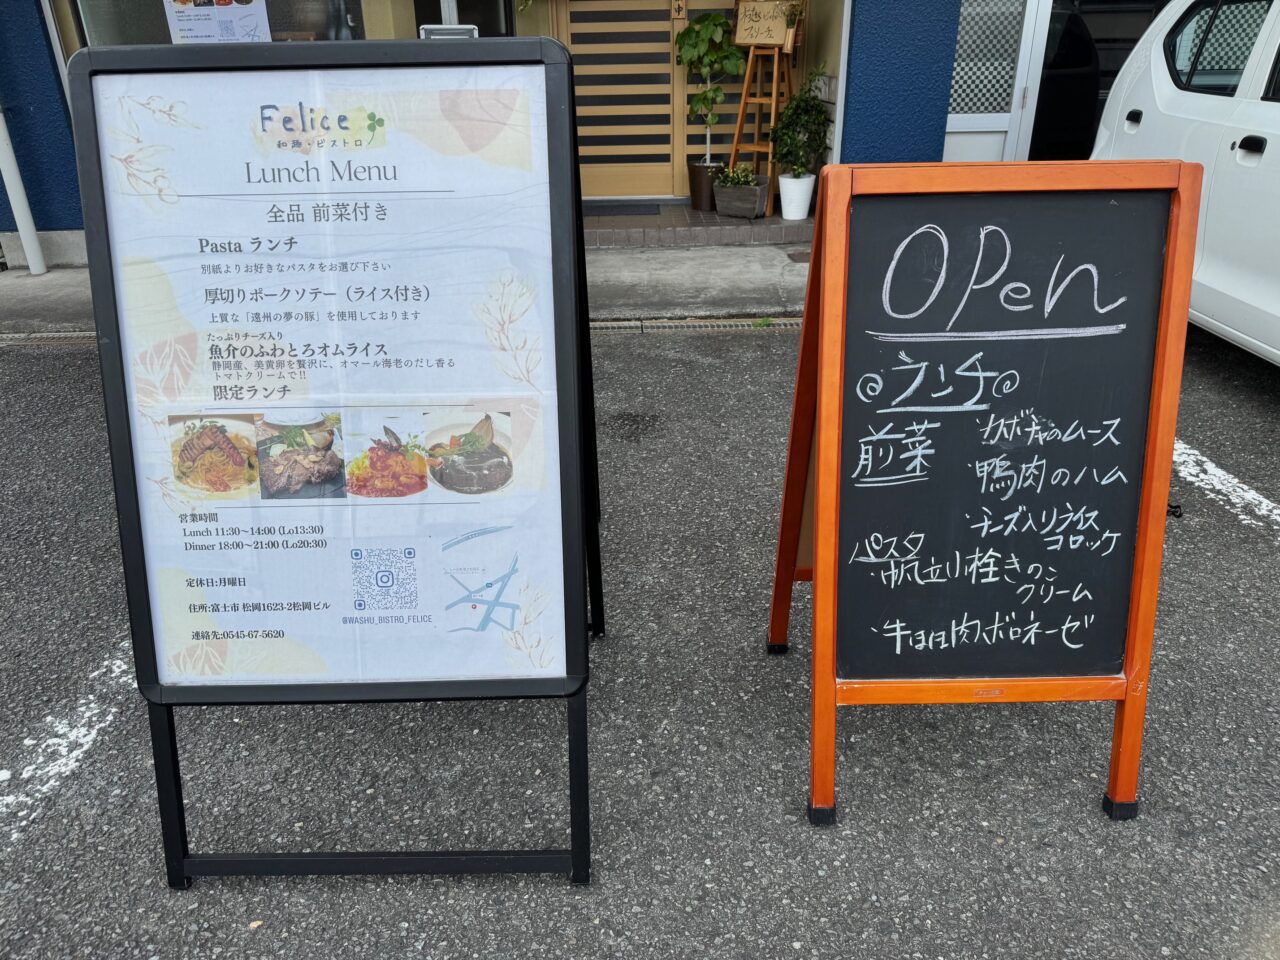 Felice
和酒・ビストロ
Lunch Menu
全品 前菜付き
Pasta ランチ
別紙よりお好きなパスタをお選び下さい
厚切りポークソテー（ライス付き）
上質な「遠州の夢の豚」を使用しております
たっぷりチーズ入り
魚介のふわとろオムライス
静岡産、美黄卵を贅沢に、オマール海老のだし香る
トマトクリームで!!
限定ランチ
営業時間
Lunch 11:30～14:00 (Lo13:30)
Dinner 18:00～21:00 (Lo20:30)
定休日:月曜日
住所:富士市 松岡1623-2松岡ビル
連絡先:0545-67-5620
@WASHU_BISTRO_FELICE
中
フェリーチェ
OPen
@ランチ@
前菜
・カボチャのムース
・鴨肉のハム
・チーズ入りライス
コロッケ
パスタ
・帆立り栓きのこ
クリーム
・牛ほほ肉ボロネーゼ